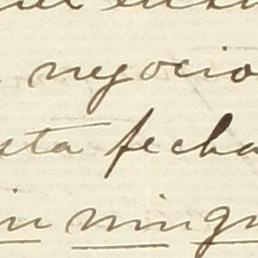 negocio
sta fecha
in ning